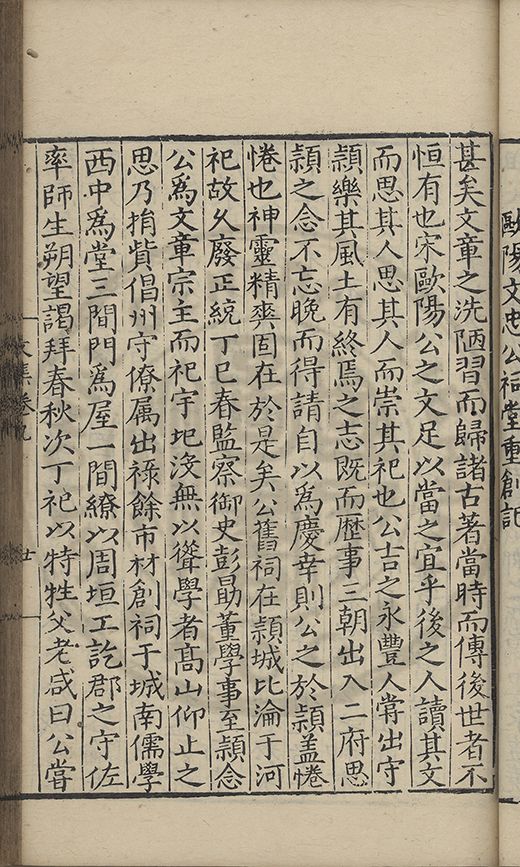 歐陽文忠公祠堂重創記
甚矣文章之洗陋習而歸諸古著當時而傳後世者不
恒有也宋歐陽公之文足以當之宜乎後之人讀其文
而思其人思其人而崇其祀也公吉之永豐人甞出守
頴樂其風土有終焉之志既而歷事三朝出入二府思
頴之念不忘晚而得請自以為慶幸則公之於頴盖惓
惓也神靈精爽固在於是矣公舊祠在頴城比淪于河
祀故久廢正統丁巳春監察御史彭勗董學事至頴念
公為文章宗主而祀宇圯沒無以聳學者髙山仰止之
思乃捐貲倡州守僚属出祿餘市材創祠于城南儒學
西中為堂三間門為屋一間繚以周垣工訖郡之守佐
率師生朔望謁拜春秋次丁祀以特牲父老咸曰公甞
文集卷九